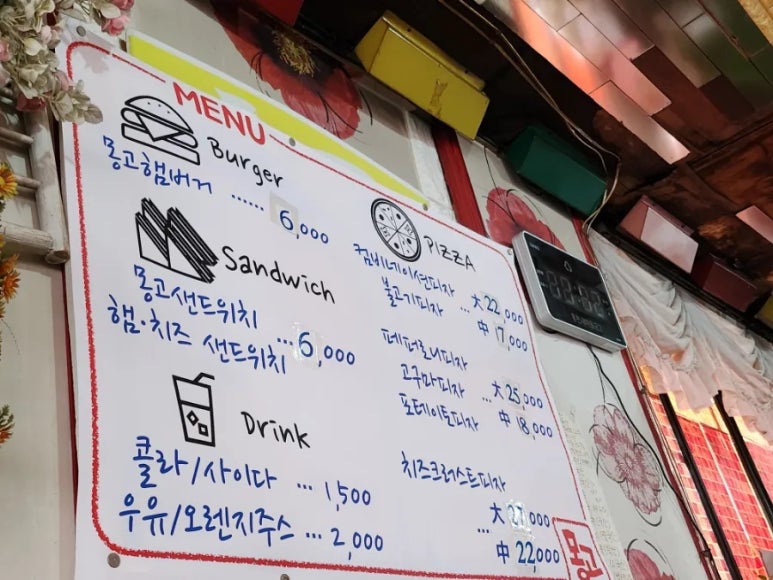 MENU
Burger
몽고햄버거 ...... 6,000
Sandwich
몽고샌드위치
햄·치즈 샌드위치 ... 6,000
Drink
콜라/사이다 ... 1,500
우유/오렌지주스 ... 2,000
PIZZA
컴비네이션피자 大 22,000
불고기피자 ... 中 17,000
페퍼로니피자
고구마피자 大 25,000
포테이토피자 ... 中 18,000
치즈크러스트피자
大 27,000
... 中 22,000
몽고